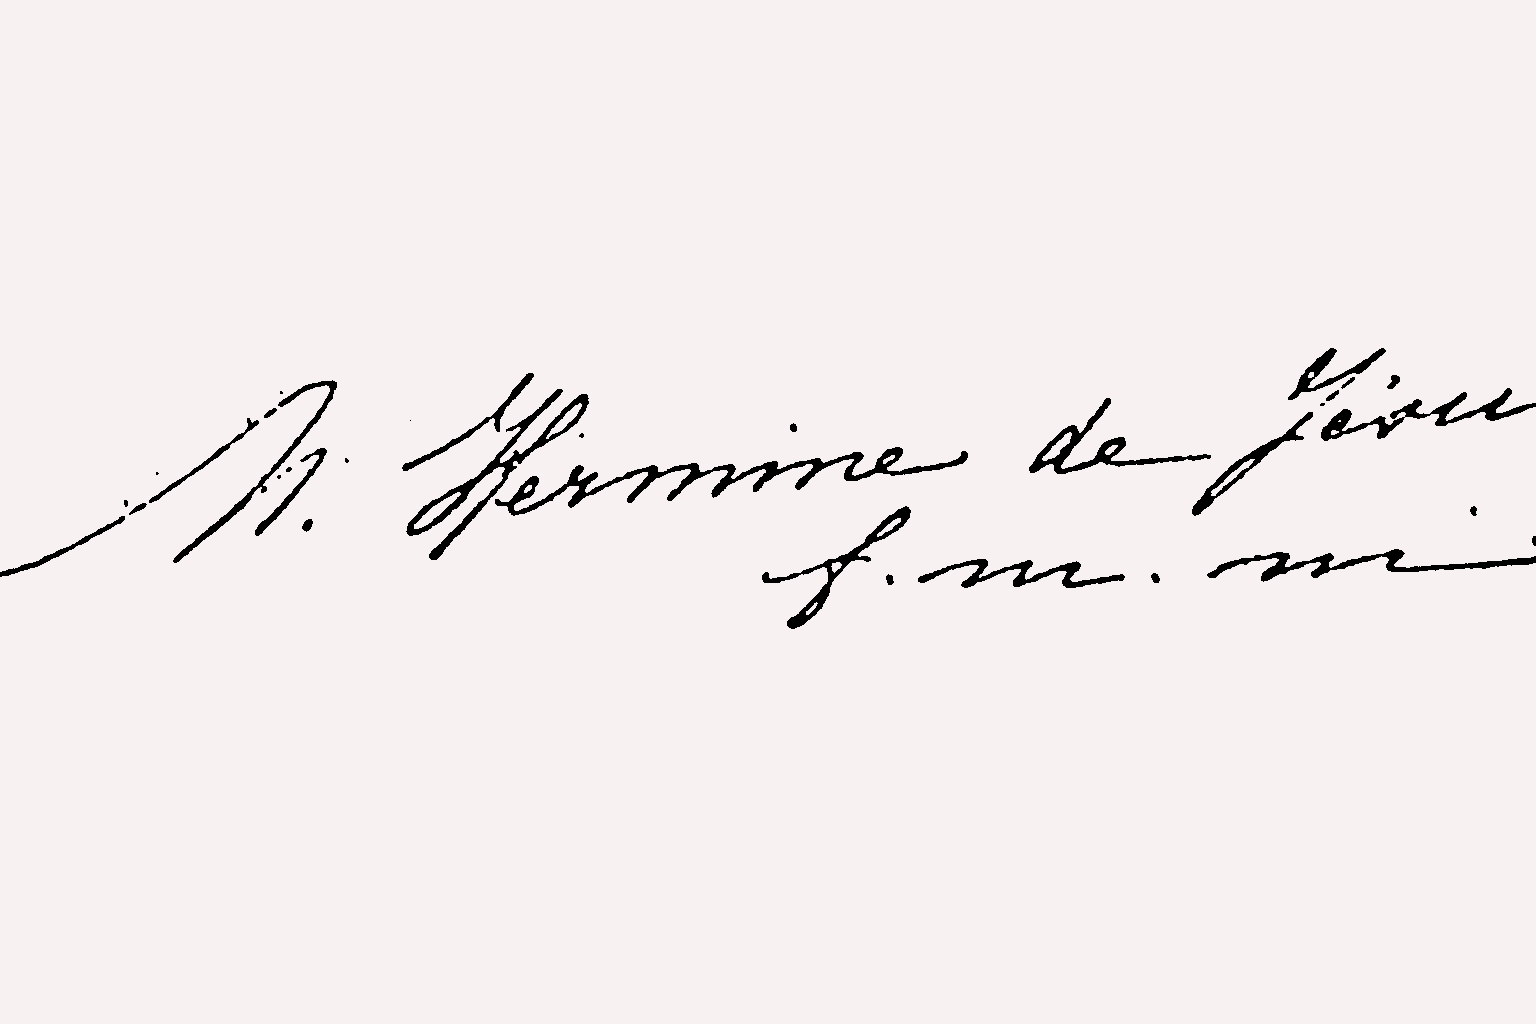 M. Hermine de Jésu
f. m. m